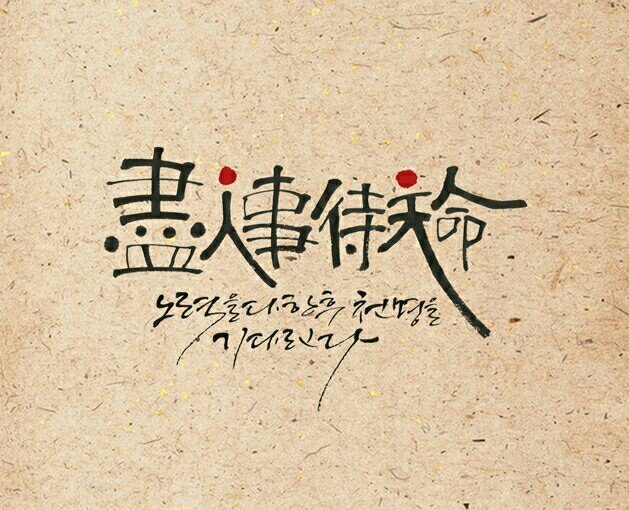 盡人事待天命
노력을 다한 후 천명을
기다린다